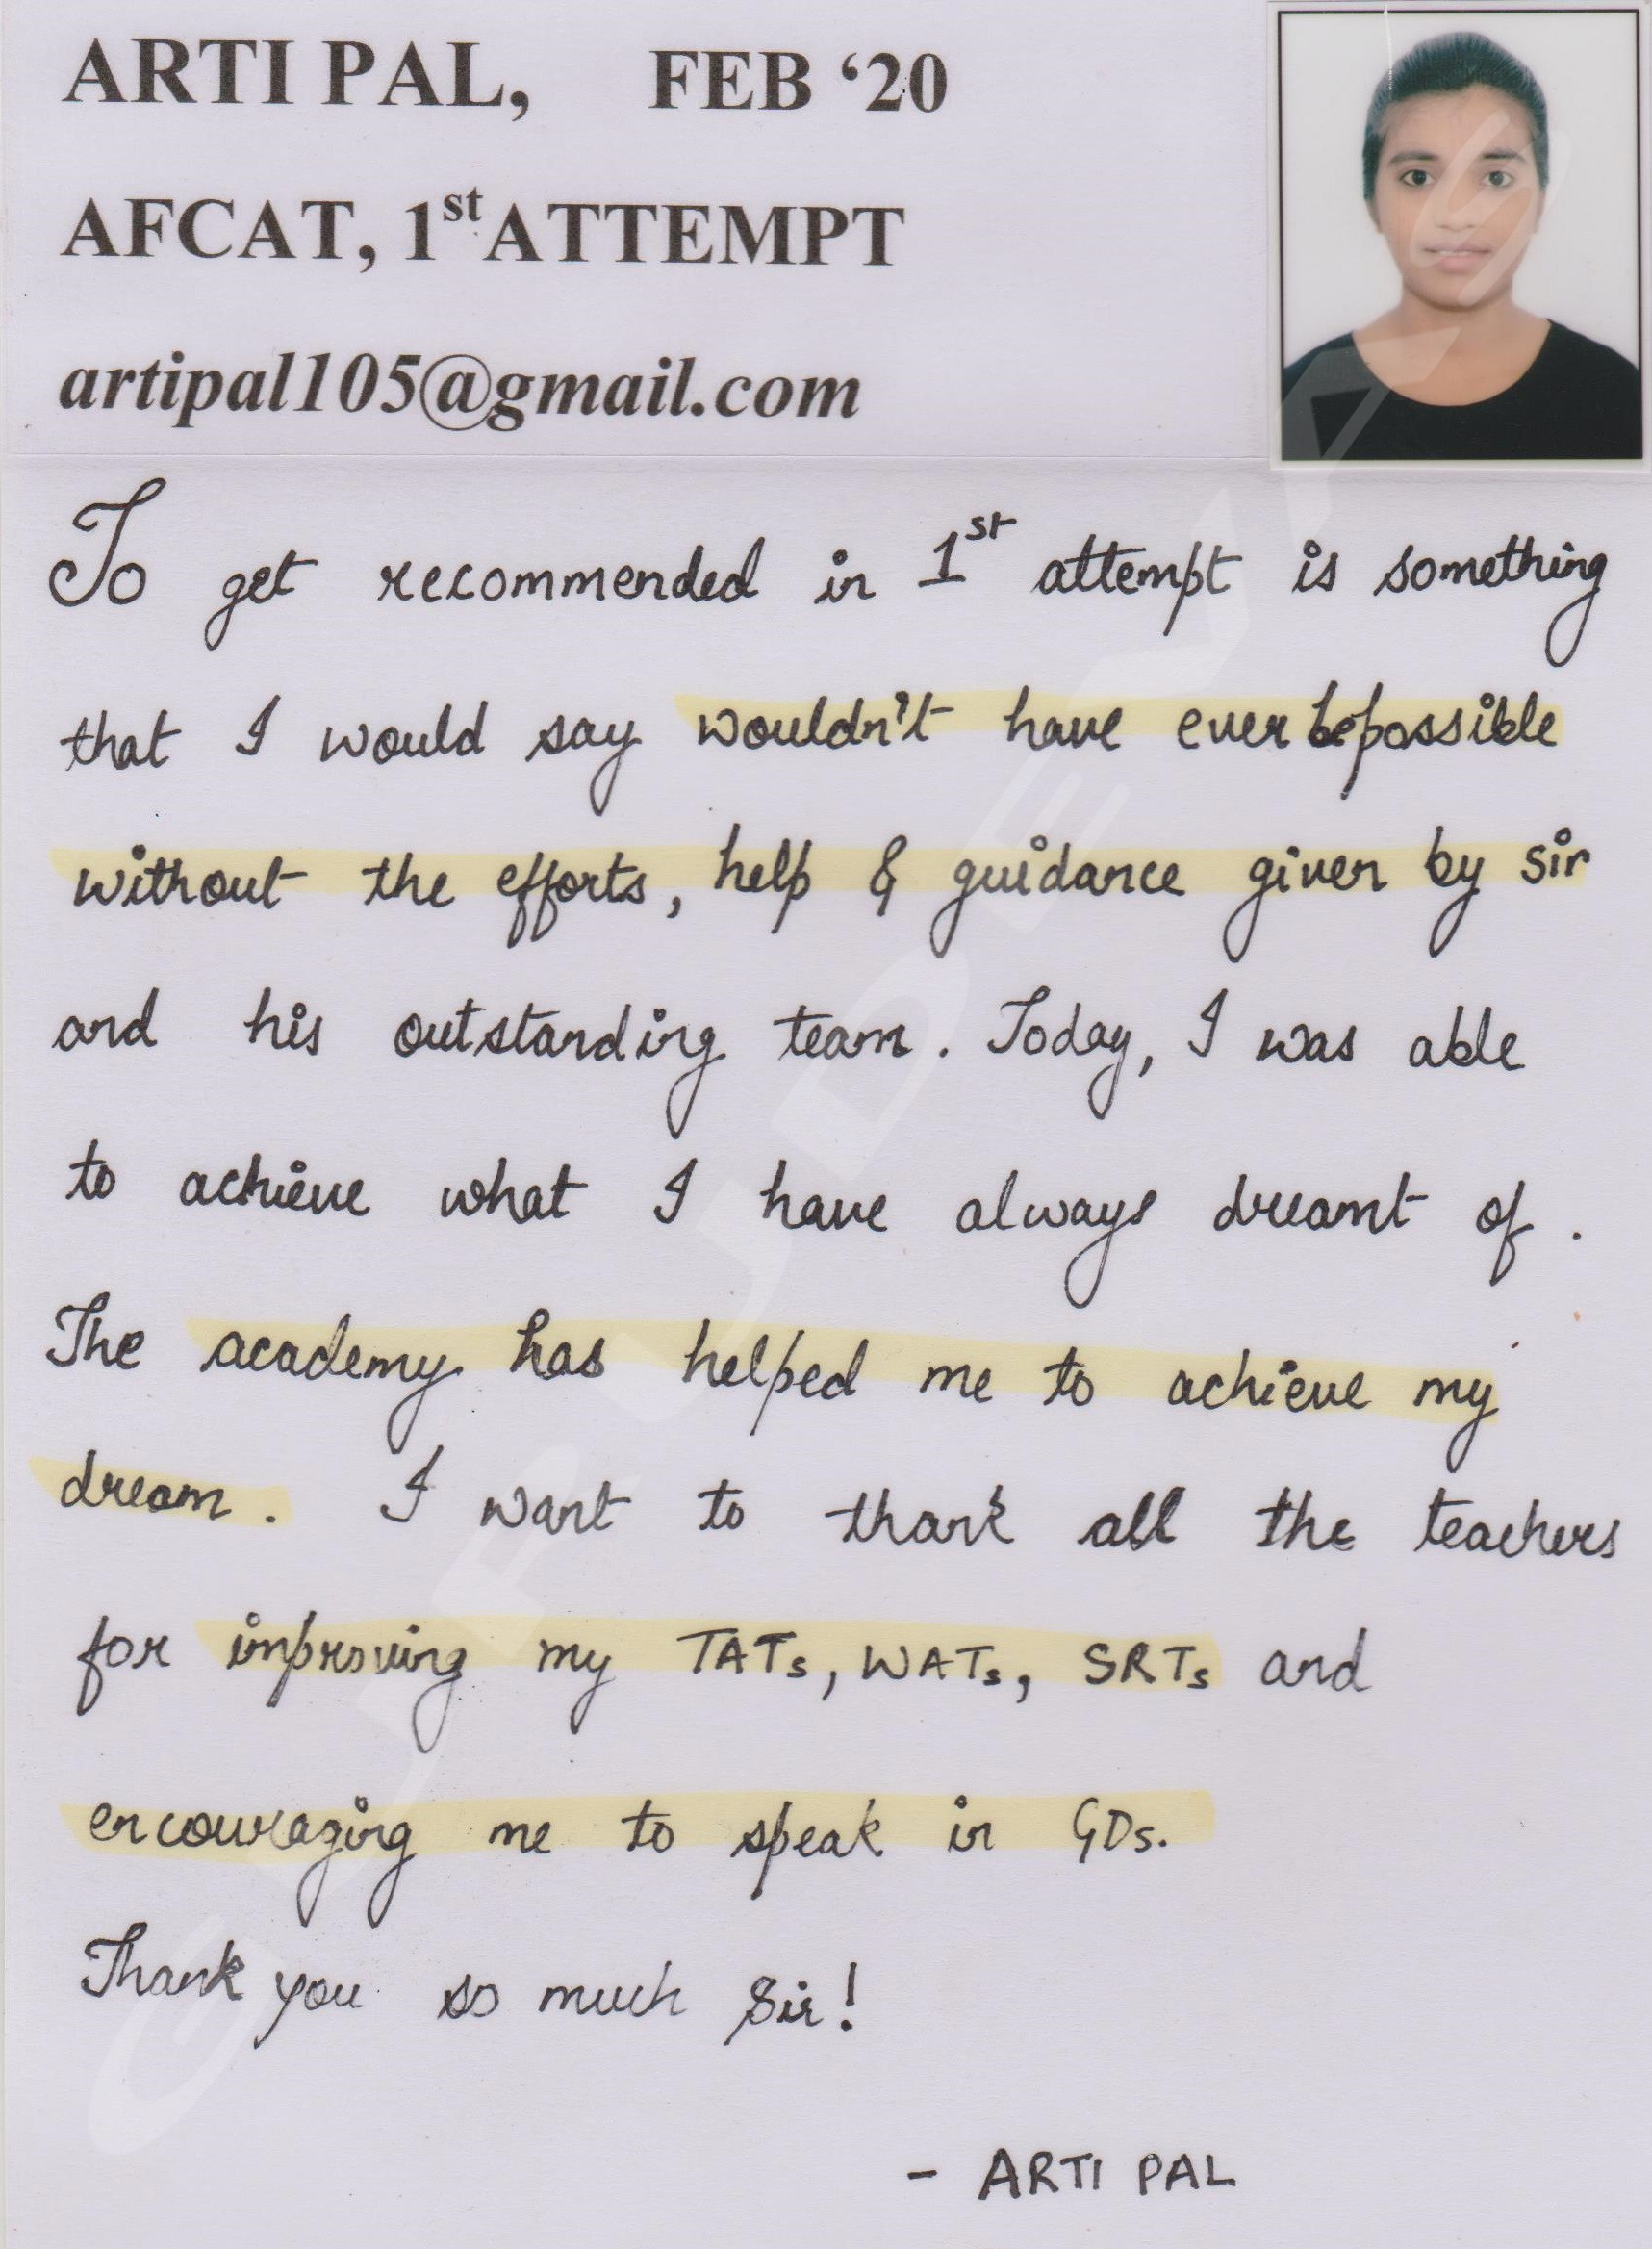 ARTI PAL, FEB ‘20
AFCAT, 1st ATTEMPT
artipal105@gmail.com
To get recommended in 1st attempt is something
that I would say wouldn't have ever be possible
without the efforts, help & guidance given by sir
and his outstanding team. Today, I was able
to achieve what I have always dreamt of.
The academy has helped me to achieve my
dream. I want to thank all the teachers
for improving my TATs, WATs, SRTs and
encouraging me to speak in GDs.
Thank you so much Sir!
- ARTI PAL
GURUDEVAS